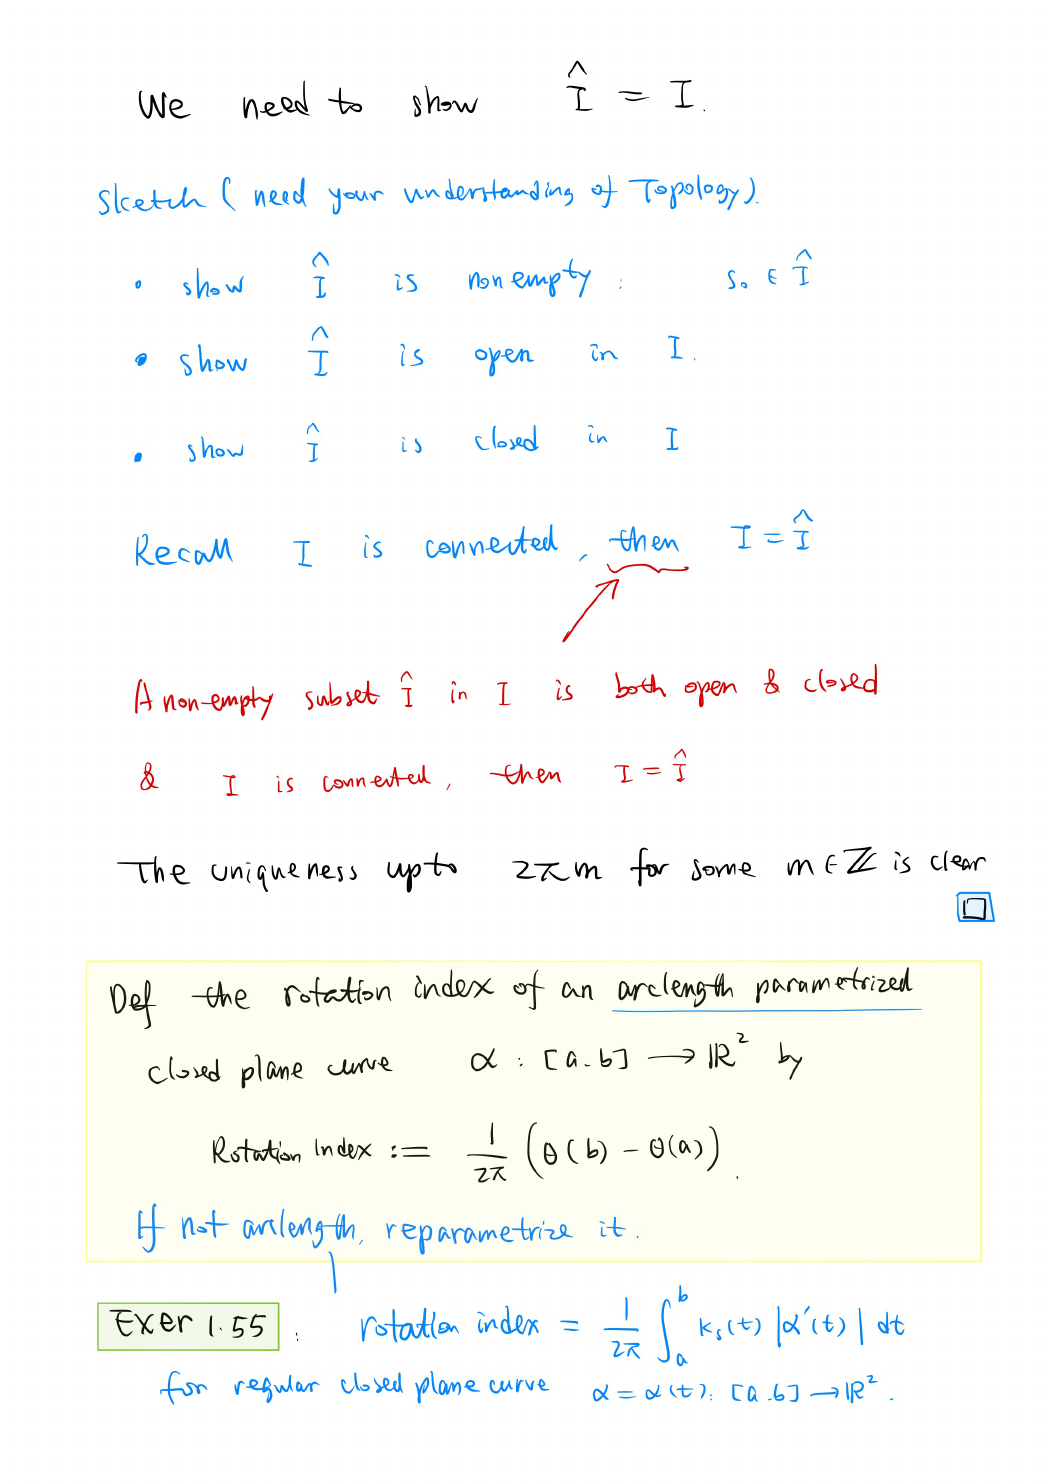 We need to show Î = I.
Sketch ( need your understanding of Topology).
• show Î is nonempty : s₀ ∈ Î
• show Î is open in I.
• show Î is closed in I
Recall I is connected, then I = Î
A non-empty subset Î in I is both open & closed
& I is connected, then I = Î
The uniqueness up to 2πm for some m ∈ ℤ is clear
□
Def the rotation index of an arclength parametrized
closed plane curve α : [a.b] ⟶ ℝ² by
Rotation Index := 1/2π (θ(b) − θ(a)).
If not arclength, reparametrize it.
Exer 1.55 : rotation index = 1/2π ∫_a^b κₛ(t) |α'(t)| dt
for regular closed plane curve α = α(t): [a.b] → ℝ².